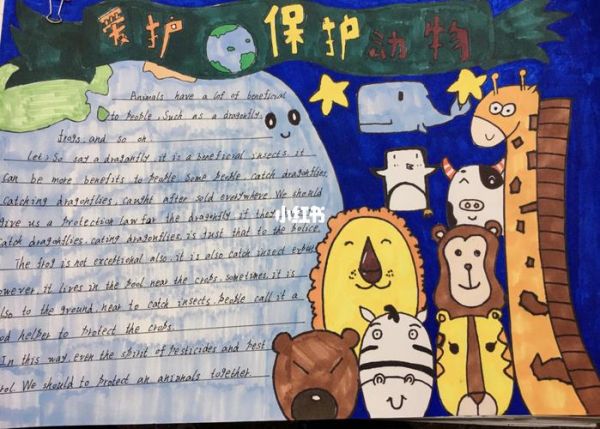 爱护 保护动物
Animals have a lot of beneficial
to people, such as a dragonfly,
frogs, and so on.
Let's so say a dragonfly, it is a beneficial insects, it
can be more benefits to people. Some people, catch dragonflies,
catching dragonflies, caught after sold everywhere. We should
give us a protection law for the dragonfly, if they
catch dragonflies, eating dragonflies, is just that to the police.
小红书
The frog is not exceptional also, it is also catch insect
owever, it lives in the pool near the crobs, sometimes, it is
lso to the ground, near to catch insects, people call it a
od helper to protect the crobs.
In this way even the spirit of pesticides and pest
rol. We should to protect an animals together